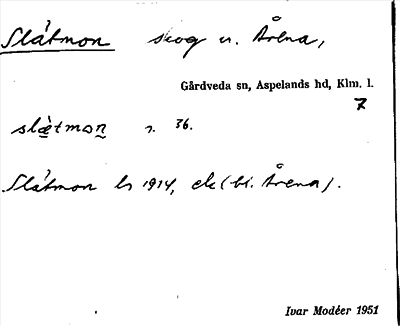 Slåtmon skog u. Årena,
Gårdveda sn, Aspelands hd, Klm. l.
7
slὰtmon 2. 36.
Slåtmon ls 1914, ek (bi. Årena).
Ivar Modéer 1951